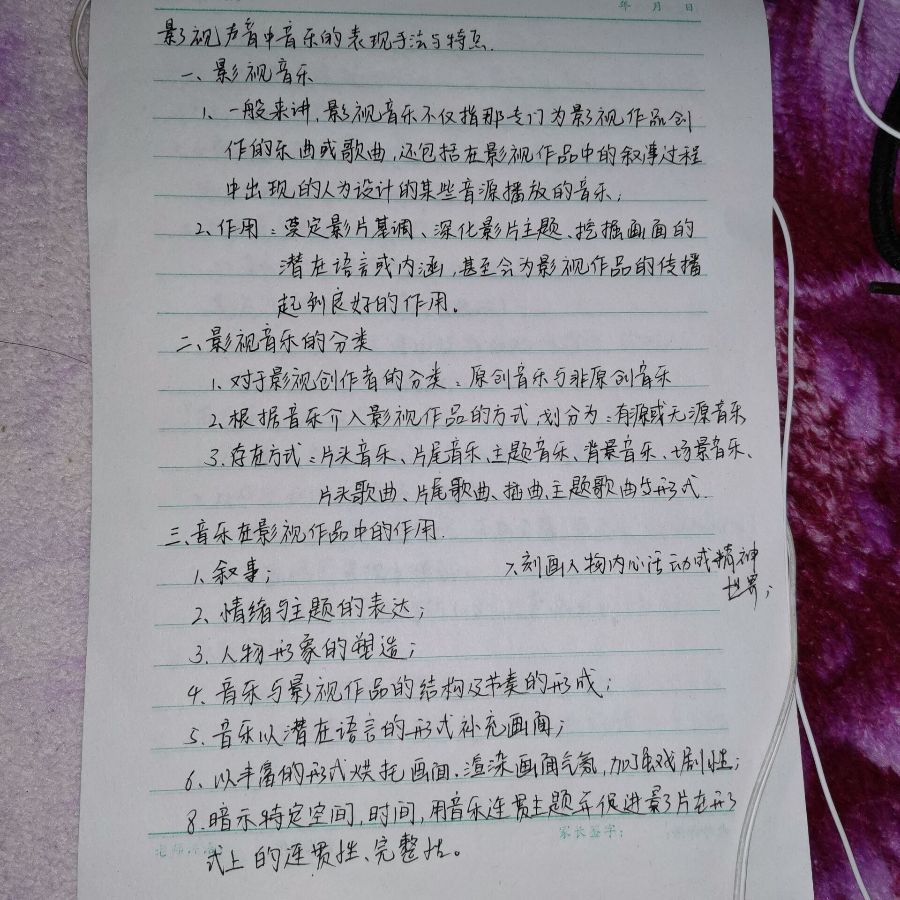 年 月 日
影视声音中音乐的表现手法与特点.
一、影视音乐
1、一般来讲,影视音乐不仅指那专门为影视作品创
作的乐曲或歌曲,还包括在影视作品中的叙事过程
中出现的人为设计的某些音源播放的音乐;
2、作用:奠定影片基调、深化影片主题、挖掘画面的
潜在语言或内涵,甚至会为影视作品的传播
起到良好的作用。
二、影视音乐的分类
1、对于影视创作者的分类:原创音乐与非原创音乐
2、根据音乐介入影视作品的方式,划分为:有源或无源音乐
3、存在方式:片头音乐、片尾音乐、主题音乐、背景音乐、场景音乐、
片头歌曲、片尾歌曲、插曲、主题歌曲与形式.
三、音乐在影视作品中的作用.
1、叙事;
7、刻画人物内心活动或精神
世界;
2、情绪与主题的表达;
3、人物形象的塑造;
4、音乐与影视作品的结构及节奏的形成;
5、音乐以潜在语言的形式补充画面;
6、以丰富的形式烘托画面、渲染画面气氛,加强戏剧性;
8、暗示特定空间、时间,用音乐连贯主题并促进影片在形
式上的连贯性、完整性。
家长签字: